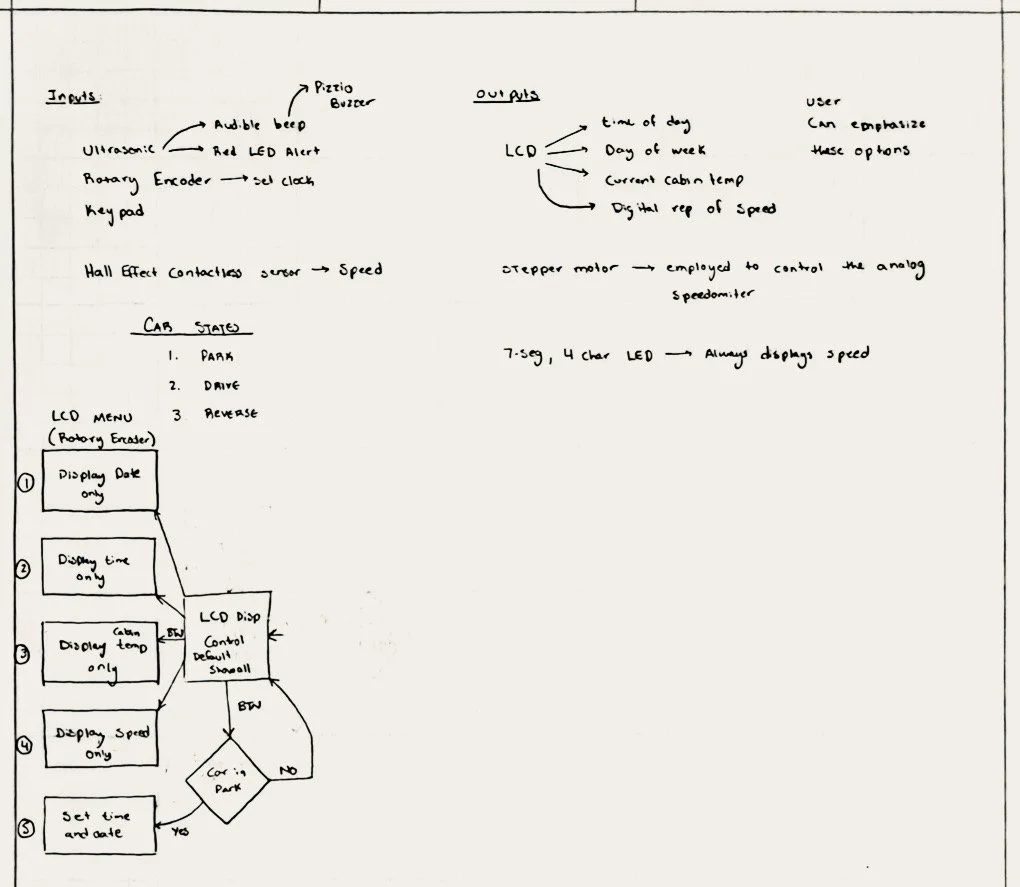 Inputs:
Pizzio
Buzzer
Audible beep
Ultrasonic
Red LED Alert
Rotary Encoder → set clock
Keypad
Hall Effect Contactless sensor → Speed
Outputs
LCD
time of day
Day of week
Current cabin temp
Digital rep of speed
user
Can emphasize
these options
stepper motor → employed to control the analog
speedomiter
7-seg, 4 char LED → Always displays speed
CAR STATES
1. PARK
2. DRIVE
3 REVERSE
LCD MENU
(Rotary Encoder)
1
Display Date
only
2
Display time
only
3
Cabin
Display temp
only
4
Display Speed
only
5
Set time
and date
LCD Disp
Control
Default
Show all
BTN
BTN
Car in
Park
NO
Yes